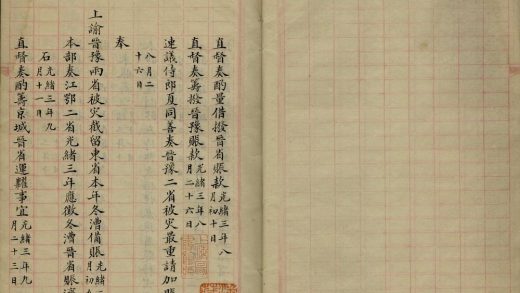 直督奏酌量借撥晉省賑款光緒三年八月初十日
直督奏籌撥晉豫賑款光緒三年八月二十六日
速議侍郎夏同善奏晉豫二省被災最重請加賑
八月二十六日
奉
上諭晉豫兩省被災截留東省本年冬漕備賑光緒三年九月初
本部奏江鄂二省光緒三年應徵冬漕晉省賑濟
石光緒三年九月十一日
直督奏酌籌京城晉省運糶事宜光緒三年九月二十三日